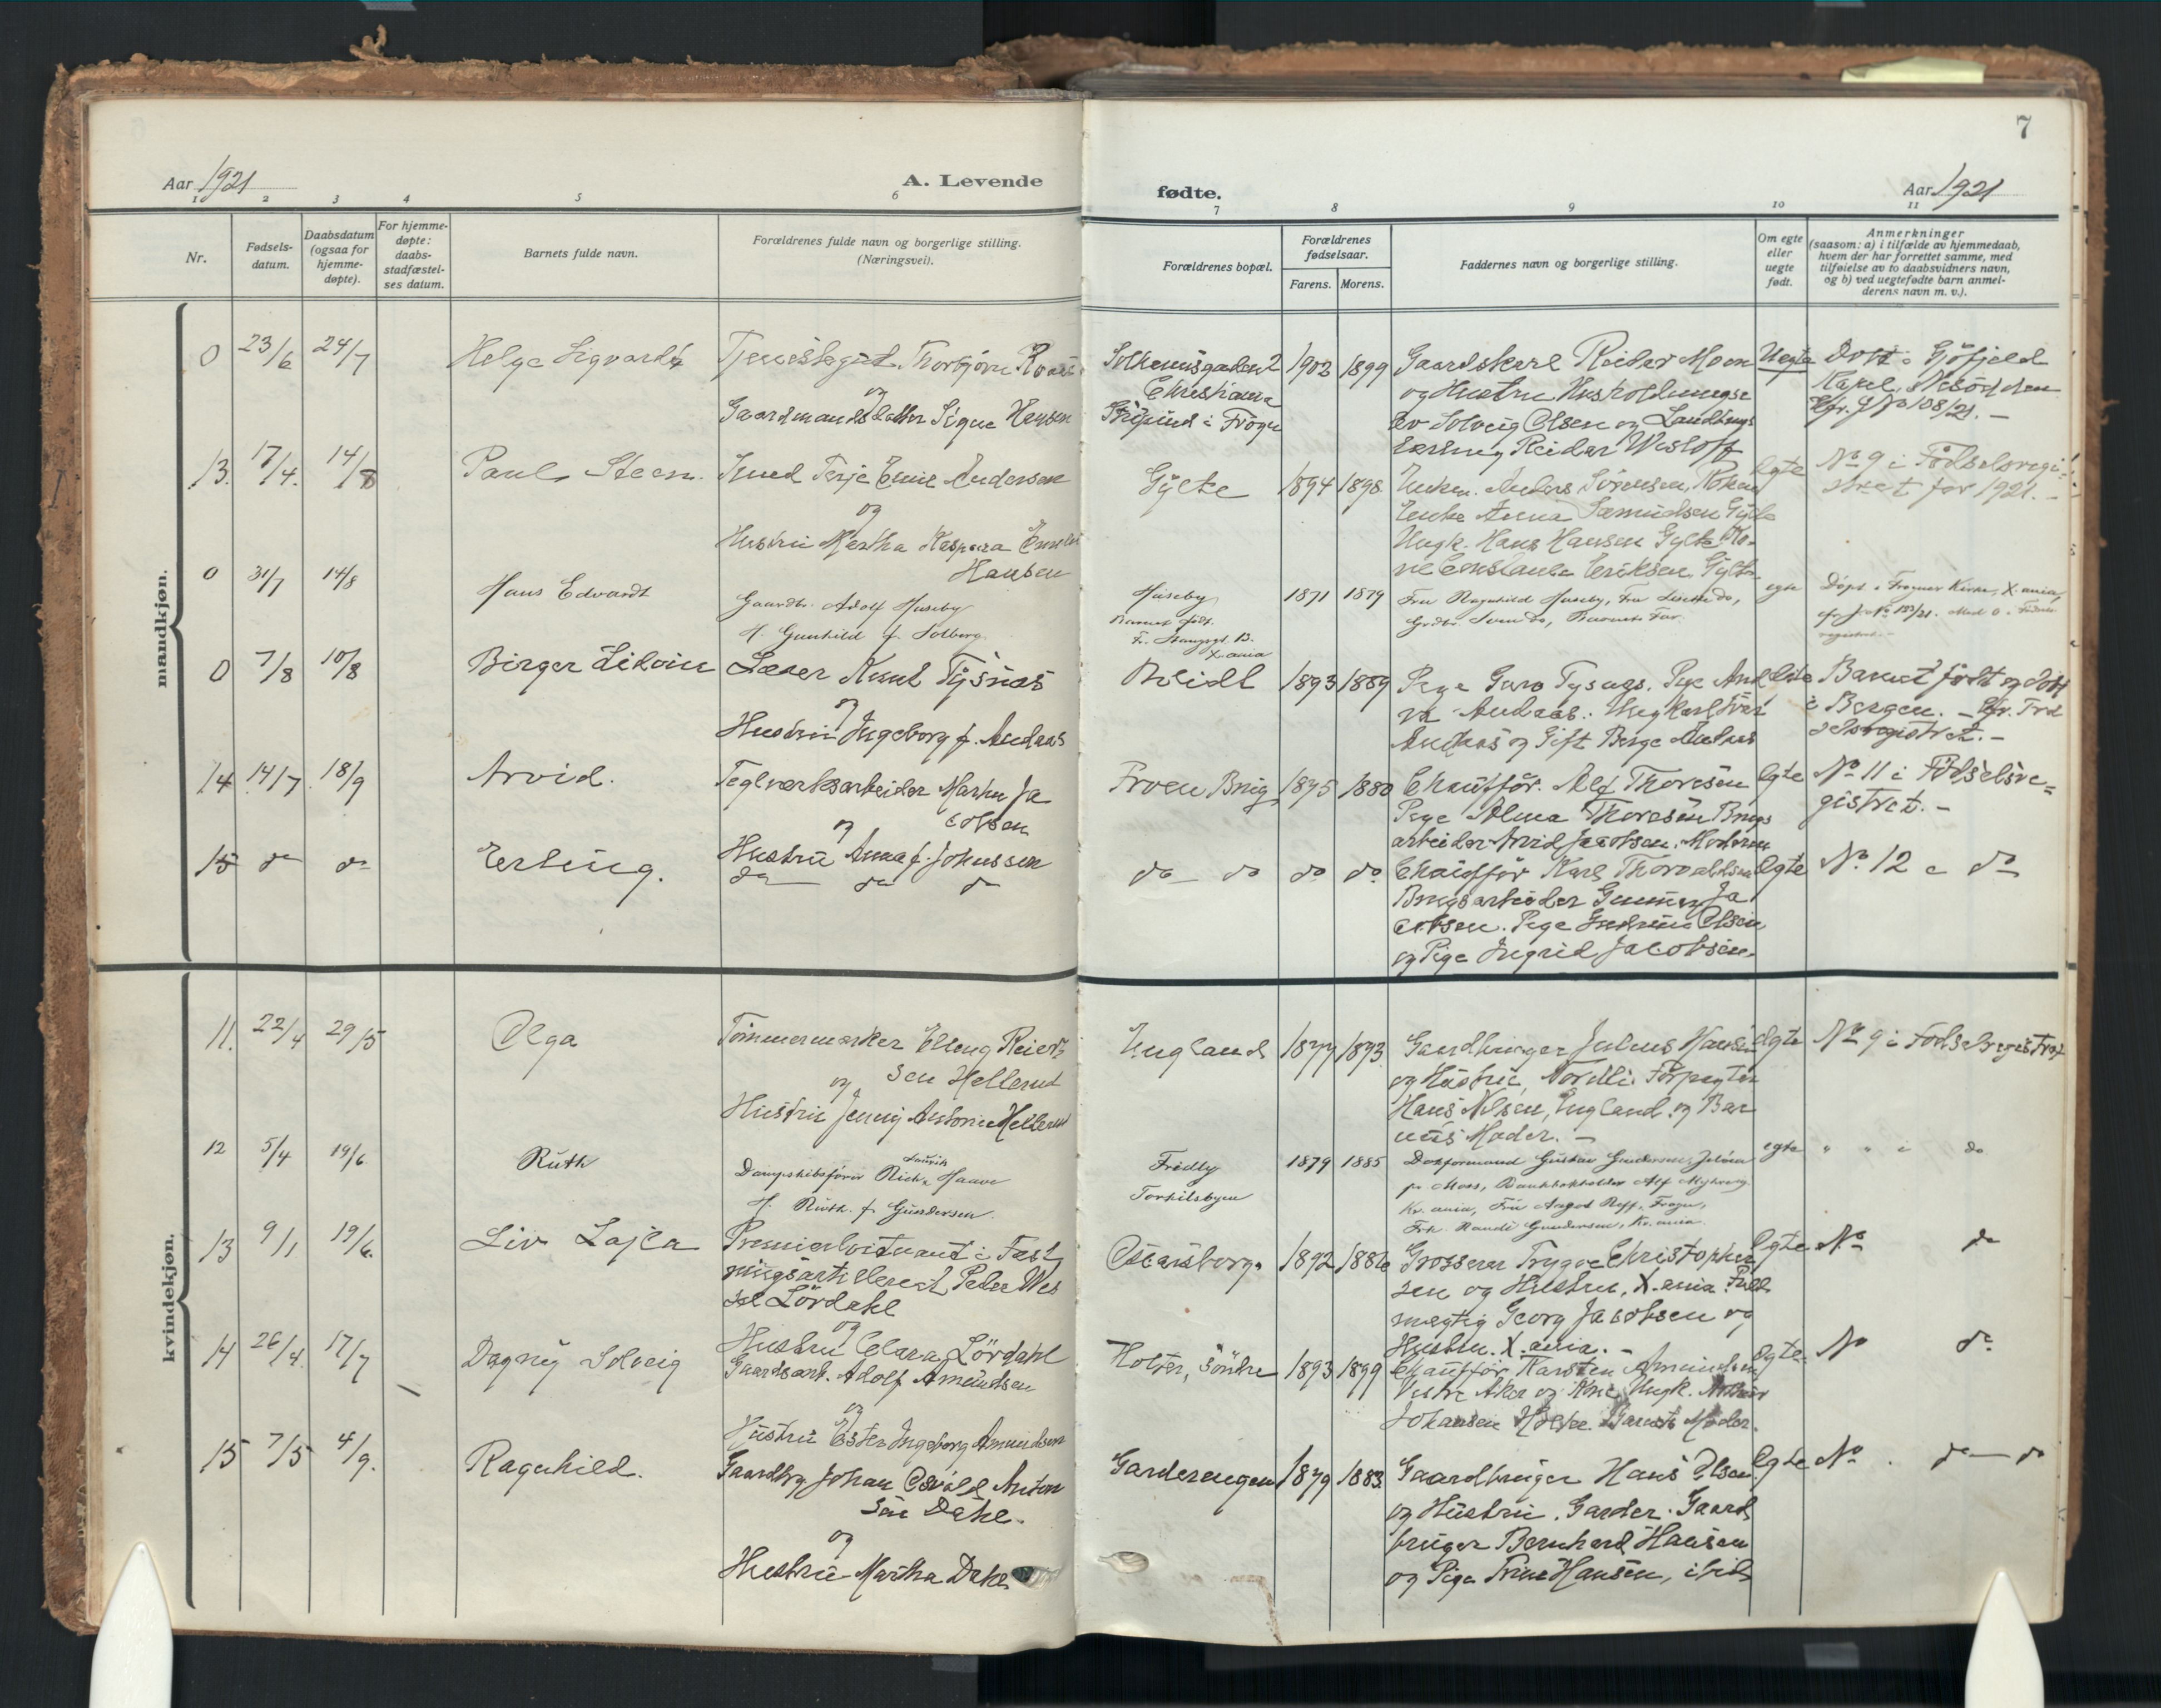 7
Aar 1921
A. Levende
fødte.
Aar 1921
1 2 3 4 5 6 7 8 9 10 11
Nr.
Fødsels-
datum.
Daabsdatum
(ogsaa for
hjemme-
døpte).
For hjemme-
døpte:
daabs-
stadfæstel-
ses datum.
Barnets fulde navn.
Forældrenes fulde navn og borgerlige stilling.
(Næringsvei).
Forældrenes bopæl.
Forældrenes
fødselsaar.
Farens. Morens.
Faddernes navn og borgerlige stilling.
Om egte
eller
uegte
født.
Anmerkninger
(saasom: a) i tilfælde av hjemmedaab,
hvem der har forrettet samme, med
tilføielse av to daabsvidners navn,
og b) ved uegtefødte barn anmel-
derens navn m. v.).
mandkjøn.
0 23/6 24/7
Helge Sigvard
Tjenestegut Thorbjørn
og
Gaardmandsdatter Signe Hansen
Christiania
i Frogn
1902 1899
Gaardskarl Reidar Moen
og Hustru
Solveig Olsen og
Reidar
Uegte
Døbt i Gjøfjeld
Kapel, Nesodden
Cfr. J No 108/21. -
13. 17/4. 14/8
Paul Steen.
Smed Terje Emil Andersen
og
Hustru Martha Kaspara
Hansen
Gylte
1894 1898
Anders Sørensen,
Enke Anna Samuelsen Gylte
Ungk. Hans Hansen Gylte
Eriksen, Gylte
Egte
No 9 i Fødselsregi-
stret for 1921. -
0 31/7 14/8
Hans Edvardt
Gaardbr. Adolf Huseby
H. Gunhild f. Solberg.
Huseby
Barnet født
X.ania
1871 1879
Fru Ragnhild Huseby, Fru Lisette do,
Grdbr. Svend do, Barnets Far.
egte
Døpt i Frogner Kirke, X.ania,
0 7/8 10/8
Birger Edvin
Læser Knut Tysnæs
og
Hustru Ingeborg f. Andaas
1893 1889
Pige Guro Tysnæs. Pige
Andaas. Ungkarl Ivar
Andaas og Gift Berge Andaas
Egte
Barnet født og døbt
i Bergen. - Cfr. Fød
selsregistret. -
14 14/7 18/9
Arvid.
Teglverksarbeider Martin Ja
cobsen
og
Hustru Anna f. Johnssen
Froen Brug
1875 1880
Chauffør. Alf Thoresen
Pige Alma Thoresen Brugs
arbeider Arvid Jacobsen. Moderen
Egte
No 11 i Fødselsre=
gistret. -
15 do do
Erling.
do do do
do do do do
Chauffør Karl Thorvaldsen
Brugsarbeider Gunnar Ja
cobsen. Pige Gudrun Olsen
og Pige Ingrid Jacobsen.
Egte
No. 12 i do
kvindekjøn.
11. 22/4 29/5
Olga
Tømmermerker Elling Reiert
sen Hellerud
og
Hustru Jenny Antonie Hellerud
England
1877 1893
Gaardbruger Julius Hansen
og Hustru, Nordli. Forpagter
Hans Nilsen, England. og Bar
nets Moder. -
Egte
No 9 i Fødselsregistret
12 5/4 19/6
Ruth
Laurits
Dampskibsfører Rich. Haave
H. Ruth f. Gundersen.
Fredly
Torkilsbyen
1879 1885
Dokformand Gustav Gundersen, Jeløen
pr. Moss, Bankbokholder Alf Myhrvang
Kr.ania, Fru Aagot Roff, Frogn,
Frk. Randi Gundersen, Kr.ania.
egte
" " i do
13 9/1 19/6.
Liv Lajla
Premierløitnant i Fæst
ningsartilleriet Peder Wes
sel Lördahl
og
Hustru Clara Lördahl
Oscarsborg.
1892 1886
Grosserer Trygve Christopher
sen og Hustru, X.ania. Fuld
mægtig Georg Jacobsen og
Hustru. X.ania. -
Egte
No do
14 26/4. 17/7
Dagny Solveig
Gaardsarb. Adolf Amundsen
og
Hustru Ester Ingeborg Amundsen
Holter, Søndre
1893 1899
Chauffør Karsten Amundsen
Vestre Aker og Kone, Ungk.
Johansen Holter. Barnets Moder.
Egte.
No do
15 7/5 4/9.
Ragnhild.
Gaardbr. Johan Osvald Anton
sen Dahl.
og
Hustru Martha Dahl
Garderengen
1879 1883.
Gaardbruger Hans Olsen
og Hustru. Garder. Gaard
bruger Bernhard Hansen
og Pige Trine Hansen, ibid
Egte
No. do - do